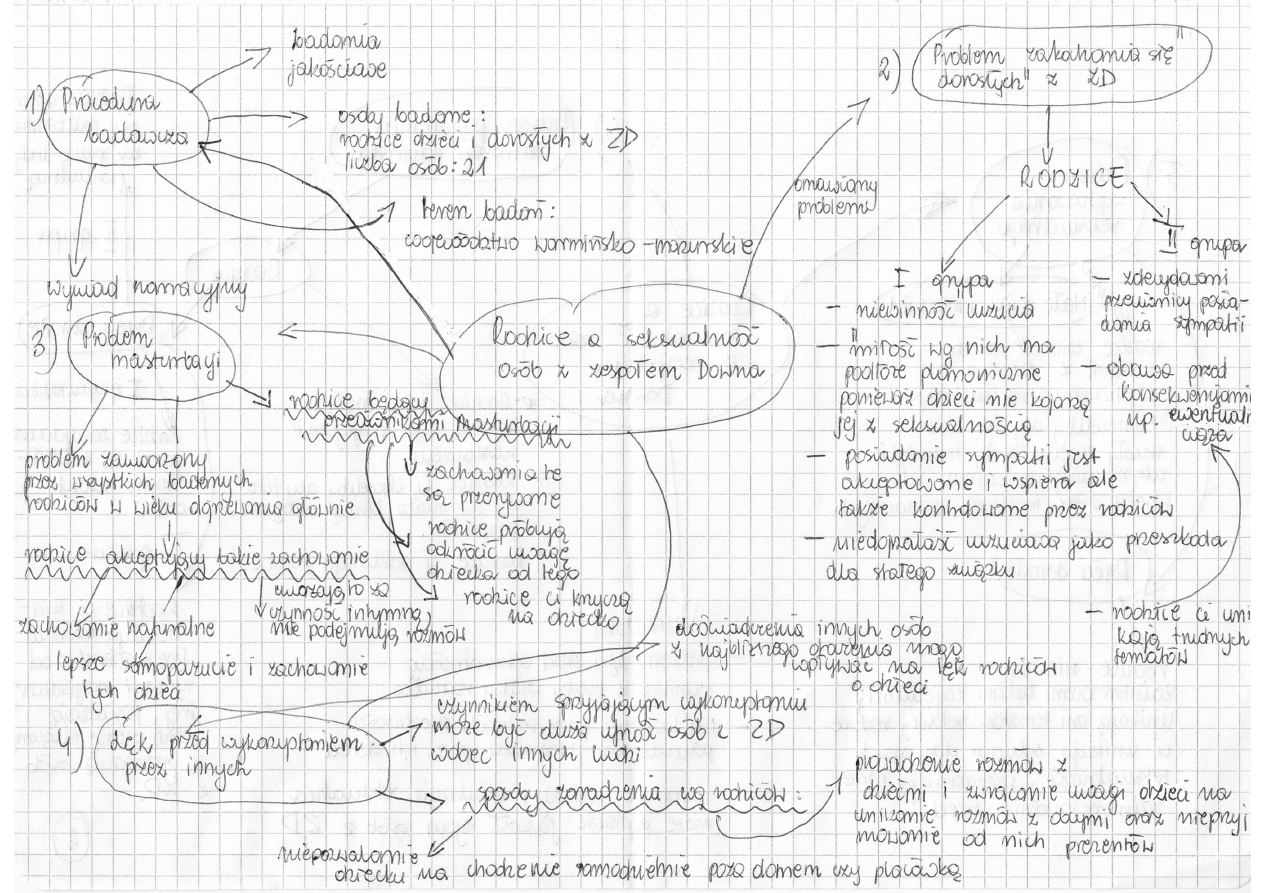 1) Procedura
badawcza
badania
jakościowe
osoby badane:
rodzice dzieci i dorosłych z ZD
liczba osób: 21
teren badań:
województwo warmińsko-mazurskie
wywiad narracyjny
omawiany
problem
2) Problem zakochania się
"dorosłych" z ZD
RODZICE
I grupa
- niewinność uczucia
- "miłość wg nich ma
podłoże platoniczne
ponieważ dzieci nie kojarzą
jej z seksualnością
- posiadanie sympatii jest
akceptowane i wspiera ale
także kontrolowane przez rodziców
- niedojrzałość uczuciowa jako przeszkoda
dla stałego związku
II grupa
- zdecydowani
przeciwnicy posia-
dania sympatii
- obawa przed
konsekwencjami
np. ewentualn
ciąża
- rodzice ci uni
kają trudnych
tematów
Rodzice a seksualność
osób z zespołem Downa
3) Problem
masturbacji
rodzice będący
przeciwnikami masturbacji
zachowania te
są przerywane
rodzice próbują
odwrócić uwagę
dziecka od tego
rodzice ci krzyczą
na dziecko
problem zauważony
przez wszystkich badanych
rodziców w wieku dojrzewania głównie
rodzice akceptujący takie zachowanie
uważają to za
czynność intymną,
nie podejmują rozmów
zachowanie naturalne
lepsze samopoczucie i zachowanie
tych dzieci
4) Lęk przed wykorzystaniem
przez innych
doświadczenia innych osób
z najbliższego otoczenia mogą
wpływać na lęk rodziców
o dzieci
czynnikiem sprzyjającym wykorzystaniu
może być duża ufność osób z ZD
wobec innych ludzi
sposoby zaradzenia wg rodziców:
prowadzenie rozmów z
dziećmi i zwracanie uwagi dzieci na
unikanie rozmów z obcymi oraz nieprzyj
mowanie od nich prezentów
niepozwalanie
dziecku na chodzenie samodzielnie poza domem czy placówką